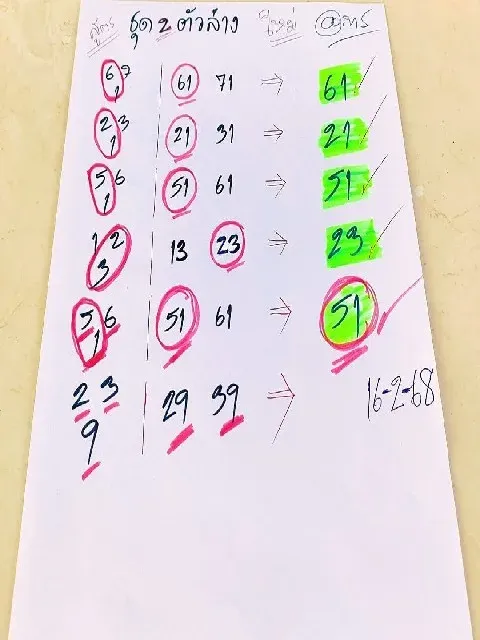 สูตร ชุด 2 ตัวล่าง ใหม่
6 7
1
61 71 ⇒ 61
2 3
1
21 31 ⇒ 21
5 6
1
51 61 ⇒ 51
1 2
3
13 23 ⇒ 23
5 6
1
51 61 ⇒ 51
2 3
9
29 39 ⇒
16-2-68